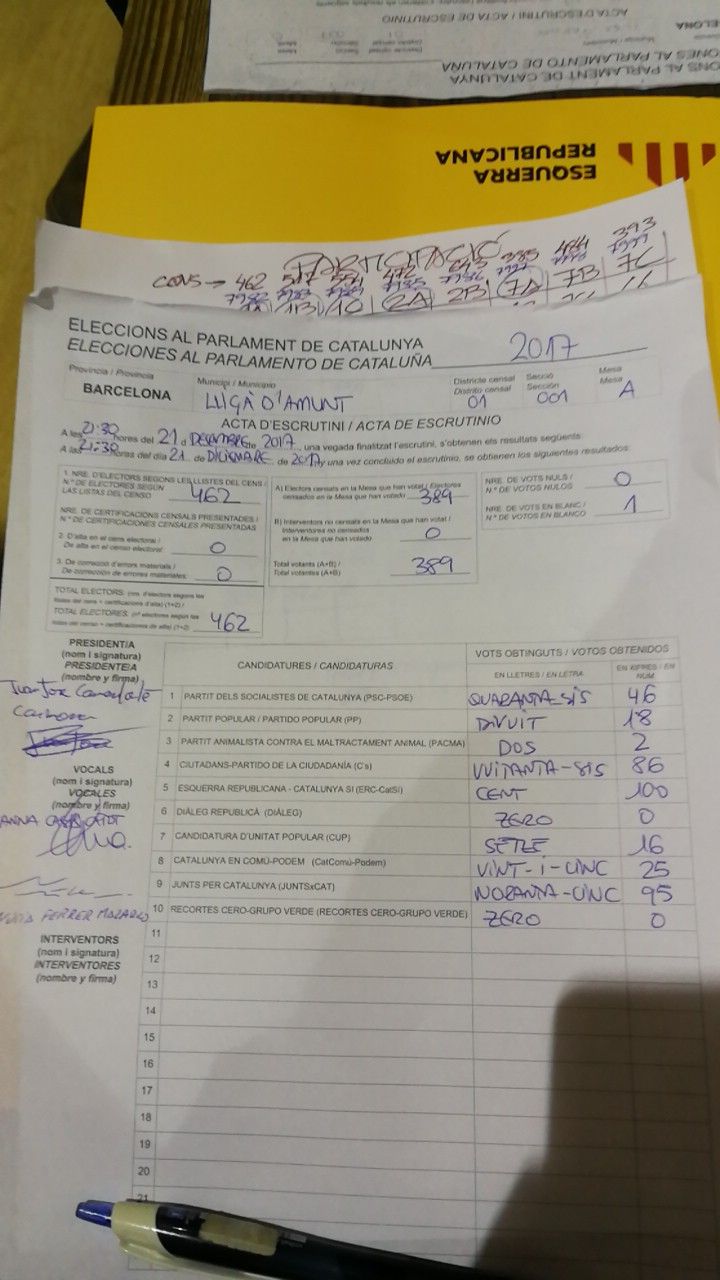 ELECCIONS AL PARLAMENT DE CATALUNYA
ELECCIONES AL PARLAMENTO DE CATALUÑA
ACTA D'ESCRUTINI / ACTA DE ESCRUTINIO
ESQUERRA
REPUBLICANA
PARTICIPACIÓ
CENS → 462 472 385 484 393
1B 1C 2A 2B 7A 7B 7C
ELECCIONS AL PARLAMENT DE CATALUNYA
ELECCIONES AL PARLAMENTO DE CATALUÑA 2017
Província / Provincia Municipi / Municipio Districte censal Distrito censal Secció Sección Mesa Mesa
BARCELONA LLIÇÀ D'AMUNT 01 001 A
ACTA D'ESCRUTINI / ACTA DE ESCRUTINIO
A les 21:30 hores del 21 d DECEMBRE de 2017, una vegada finalitzat l'escrutini, s'obtenen els resultats següents:
A las 21:30 horas del día 21 de DICIEMBRE de 2017 y una vez concluido el escrutinio, se obtienen los siguientes resultados:
1. NRE. D'ELECTORS SEGONS LES LLISTES DEL CENS /
N.º DE ELECTORES SEGÚN
LAS LISTAS DEL CENSO 462
NRE. DE CERTIFICACIONS CENSALS PRESENTADES /
N.º DE CERTIFICACIONES CENSALES PRESENTADAS
2. D'alta en el cens electoral /
De alta en el censo electoral 0
3. De correcció d'errors materials /
De corrección de errores materiales 0
TOTAL ELECTORS: (nre. d'electors segons les
llistes del cens + certificacions d'alta) (1+2) /
TOTAL ELECTORES: (nº electores según las
listas del censo + certificaciones de alta) (1+2) 462
A) Electors censats en la Mesa que han votat / Electores
censados en la Mesa que han votado 389
B) Interventors no censats en la Mesa que han votat /
Interventores no censados
en la Mesa que han votado 0
Total votants (A+B) /
Total votantes (A+B) 389
NRE. DE VOTS NULS /
N.º DE VOTOS NULOS 0
NRE. DE VOTS EN BLANC /
N.º DE VOTOS EN BLANCO 1
PRESIDENT/A
(nom i signatura)
PRESIDENTE/A
(nombre y firma)
VOCALS
(nom i signatura)
VOCALES
(nombre y firma)
ANNA
FERRER
INTERVENTORS
(nom i signatura)
INTERVENTORES
(nombre y firma)
CANDIDATURES / CANDIDATURAS VOTS OBTINGUTS / VOTOS OBTENIDOS
EN LLETRES / EN LETRA EN XIFRES / EN NÚM
1 PARTIT DELS SOCIALISTES DE CATALUNYA (PSC-PSOE) QUARANTA-SIS 46
2 PARTIT POPULAR / PARTIDO POPULAR (PP) DIVUIT 18
3 PARTIT ANIMALISTA CONTRA EL MALTRACTAMENT ANIMAL (PACMA) DOS 2
4 CIUTADANS-PARTIDO DE LA CIUDADANÍA (C's) VUITANTA-SIS 86
5 ESQUERRA REPUBLICANA - CATALUNYA SÍ (ERC-CatSí) CENT 100
6 DIÀLEG REPUBLICÀ (DIÀLEG) ZERO 0
7 CANDIDATURA D'UNITAT POPULAR (CUP) SETZE 16
8 CATALUNYA EN COMÚ-PODEM (CatComú-Podem) VINT-I-CINC 25
9 JUNTS PER CATALUNYA (JUNTSxCAT) NORANTA-CINC 95
10 RECORTES CERO-GRUPO VERDE (RECORTES CERO-GRUPO VERDE) ZERO 0
11
12
13
14
15
16
17
18
19
20
21